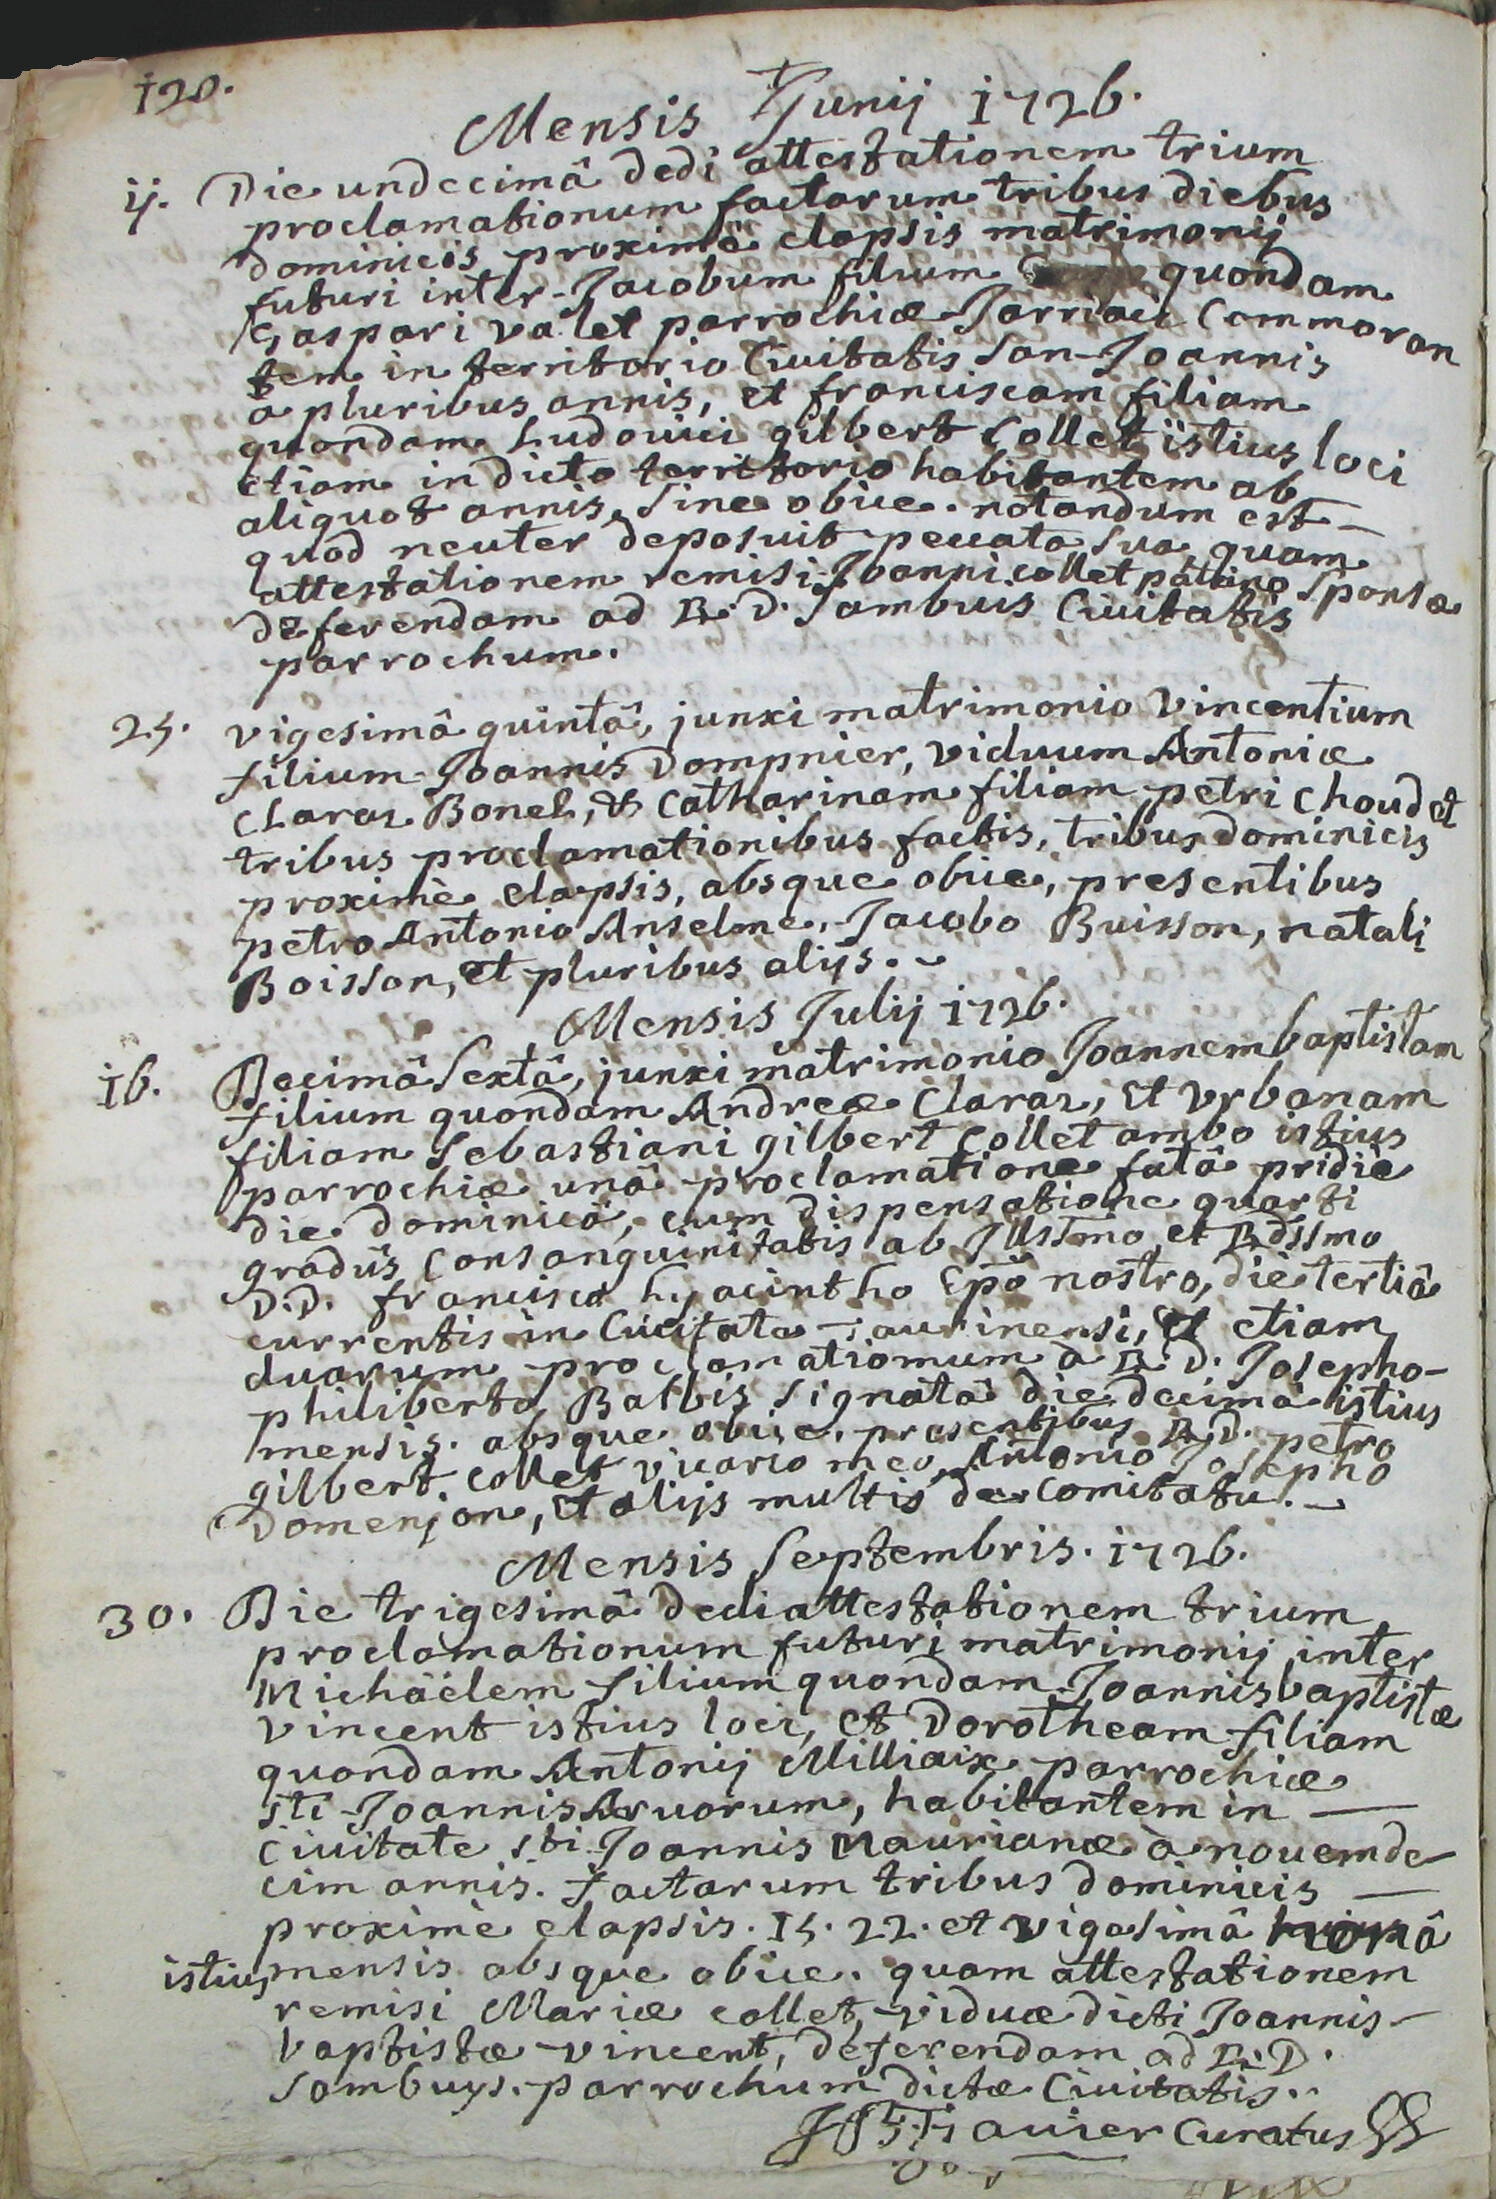 120.
Mensis Junij 1726.
ij. Die undecimâ dedi attestationem trium
proclamationum factarum tribus diebus
dominicis proximè elapsis matrimonij
futuri inter Jacobum filium quondam
Gaspari Valet parrochiæ Jarriaci Commoran
tem in territorio Civitatis San-Joannis
a pluribus annis, et franciscam filiam
quondam Ludovici gilbert Collet istius loci
etiam in dicto territorio habitantem ab
aliquot annis, sine obice. notandum est —
quod neuter deposuit peccata sua, quam
attestationem remisi Joanni collet patrino sponsæ
deferendam ad R. D. Sambuis Civitatis
parrochum.
25. vigesimâ quintâ, junxi matrimonio Vincentium
filium Joannis Dompnier, viduum Antoniæ
Claraz Bonel, & Catharinam filiam petri Choudet
tribus proclamationibus factis, tribus dominicis
proximè elapsis, absque obice, presentibus
petro Antonio Anselme, Jacobo Buisson, natali
Boisson, et pluribus alijs.
Mensis Julij 1726.
16. Decimâ Sextâ, junxi matrimonio Joannembaptistam
filium quondam Andreæ Claraz, et Urbanam
filiam Sebastiani gilbert Collet ambo istius
parrochiæ unâ proclamatione fatâ pridiè
die dominicâ, cum dispensatione quarti
gradûs Consanguinitatis ab Jllstmo et Rdssmo
D.D. francisco hyacintho Epõ nostro, die tertiâ
currentis in Civitate Taurinensi, Et etiam
duarum proclamationum a R. D. Josepho-
philiberto Balbis signatâ die decimâ istius
mensis. absque obice. presentibus R D. petro
gilbert collet vicario meo, Antonio Josepho
Domenjon, et alijs multis de Comitatu. —
Mensis Septembris. 1726.
30. Die trigesimâ dedi attestationem trium
proclamationum futuri matrimonij inter
Michäelem filium quondam Joannisbaptistæ
Vincent istius loci, et Dorotheam filiam
quondam Antonij Milliaix parrochiæ
sti Joannis Arvorum, habitantem in —
Civitate sti Joannis Maurianæ a novemde-
cim annis. factarum tribus dominicis —
proximè elapsis. 15. 22. et vigesimâ nonâ
istius mensis absque obice. quam attestationem
remisi Mariæ collet, viduæ dicti Joannis-
baptistæ vincent, deferendam ad R. D.
Sambuys. parrochum dictæ Civitatis.
Curatus